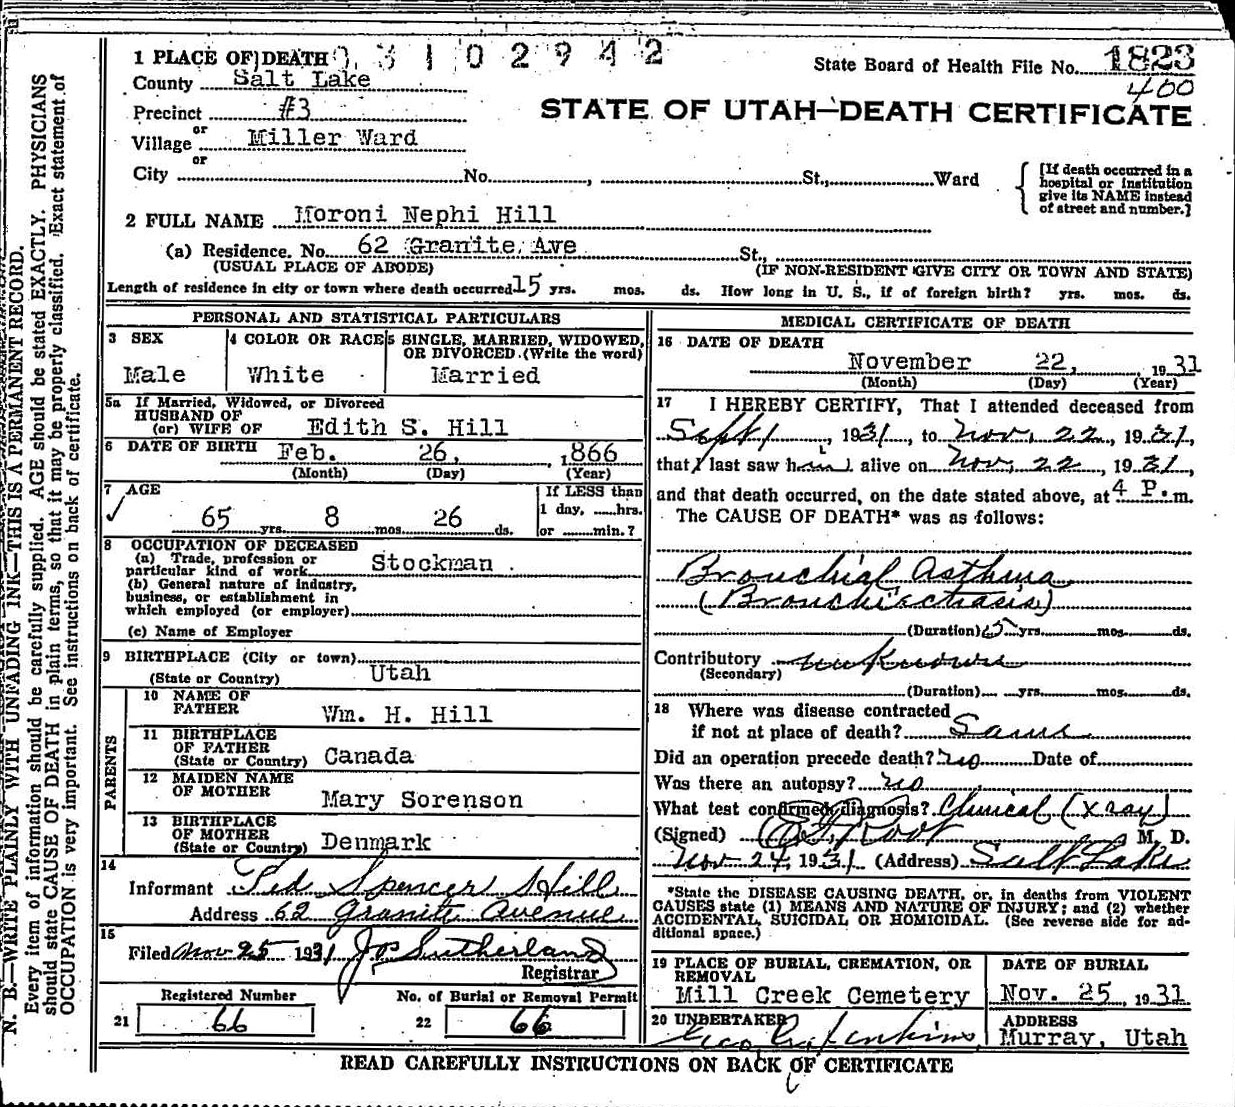 1 PLACE OF DEATH 3 1 0 2 9 4 2
State Board of Health File No. 1823
400
County Salt Lake
Precinct #3
STATE OF UTAH—DEATH CERTIFICATE
or
Village Miller Ward
or
City No. , St., Ward
[If death occurred in a hospital or institution give its NAME instead of street and number.]
2 FULL NAME Moroni Nephi Hill
(a) Residence. No. 62 Granite Ave St.,
(USUAL PLACE OF ABODE) (IF NON-RESIDENT GIVE CITY OR TOWN AND STATE)
Length of residence in city or town where death occurred 15 yrs. mos. ds. How long in U. S., if of foreign birth? yrs. mos. ds.
N. B.—WRITE PLAINLY WITH UNFADING INK—THIS IS A PERMANENT RECORD.
Every item of information should be carefully supplied. AGE should be stated EXACTLY. PHYSICIANS
should state CAUSE OF DEATH in plain terms, so that it may be properly classified. Exact statement of
OCCUPATION is very important. See instructions on back of certificate.
PERSONAL AND STATISTICAL PARTICULARS
3 SEX
Male
4 COLOR OR RACE
White
5 SINGLE, MARRIED, WIDOWED,
OR DIVORCED. (Write the word)
Married
5a If Married, Widowed, or Divorced
HUSBAND OF
(or) WIFE OF Edith S. Hill
6 DATE OF BIRTH Feb. 26, , 1866
(Month) (Day) (Year)
7 AGE
65 yrs. 8 mos. 26 ds.
If LESS than
1 day, hrs.
or min.?
8 OCCUPATION OF DECEASED
(a) Trade, profession or
particular kind of work Stockman
(b) General nature of industry,
business, or establishment in
which employed (or employer)
(c) Name of Employer
9 BIRTHPLACE (City or town)
(State or Country) Utah
PARENTS
10 NAME OF
FATHER Wm. H. Hill
11 BIRTHPLACE
OF FATHER
(State or Country) Canada
12 MAIDEN NAME
OF MOTHER Mary Sorenson
13 BIRTHPLACE
OF MOTHER
(State or Country) Denmark
14
Informant Ted Spencer Hill
Address 62 Granite Avenue
15
Filed Nov 25 1931 J P Sutherland
Registrar
Registered Number
21 66
No. of Burial or Removal Permit
22 66
MEDICAL CERTIFICATE OF DEATH
16 DATE OF DEATH
November 22, , 1931
(Month) (Day) (Year)
17 I HEREBY CERTIFY, That I attended deceased from
Sept 1, 1931, to Nov. 22, 1931,
that I last saw him alive on Nov. 22, 1931,
and that death occurred, on the date stated above, at 4 P. m.
The CAUSE OF DEATH* was as follows:
Bronchial Asthma
(Bronchiectasis)
(Duration) yrs. mos. ds.
Contributory unknown
(Secondary)
(Duration) yrs. mos. ds.
18 Where was disease contracted
if not at place of death? Same
Did an operation precede death? no Date of
Was there an autopsy? no
What test confirmed diagnosis? Clinical (X ray)
(Signed) M. D.
Nov 24, 1931 (Address) Salt Lake
*State the DISEASE CAUSING DEATH, or, in deaths from VIOLENT
CAUSES state (1) MEANS AND NATURE OF INJURY; and (2) whether
ACCIDENTAL, SUICIDAL OR HOMICIDAL. (See reverse side for ad-
ditional space.)
19 PLACE OF BURIAL, CREMATION, OR
REMOVAL
Mill Creek Cemetery
DATE OF BURIAL
Nov. 25, 1931
20 UNDERTAKER
Jenkins
ADDRESS
Murray, Utah
READ CAREFULLY INSTRUCTIONS ON BACK OF CERTIFICATE